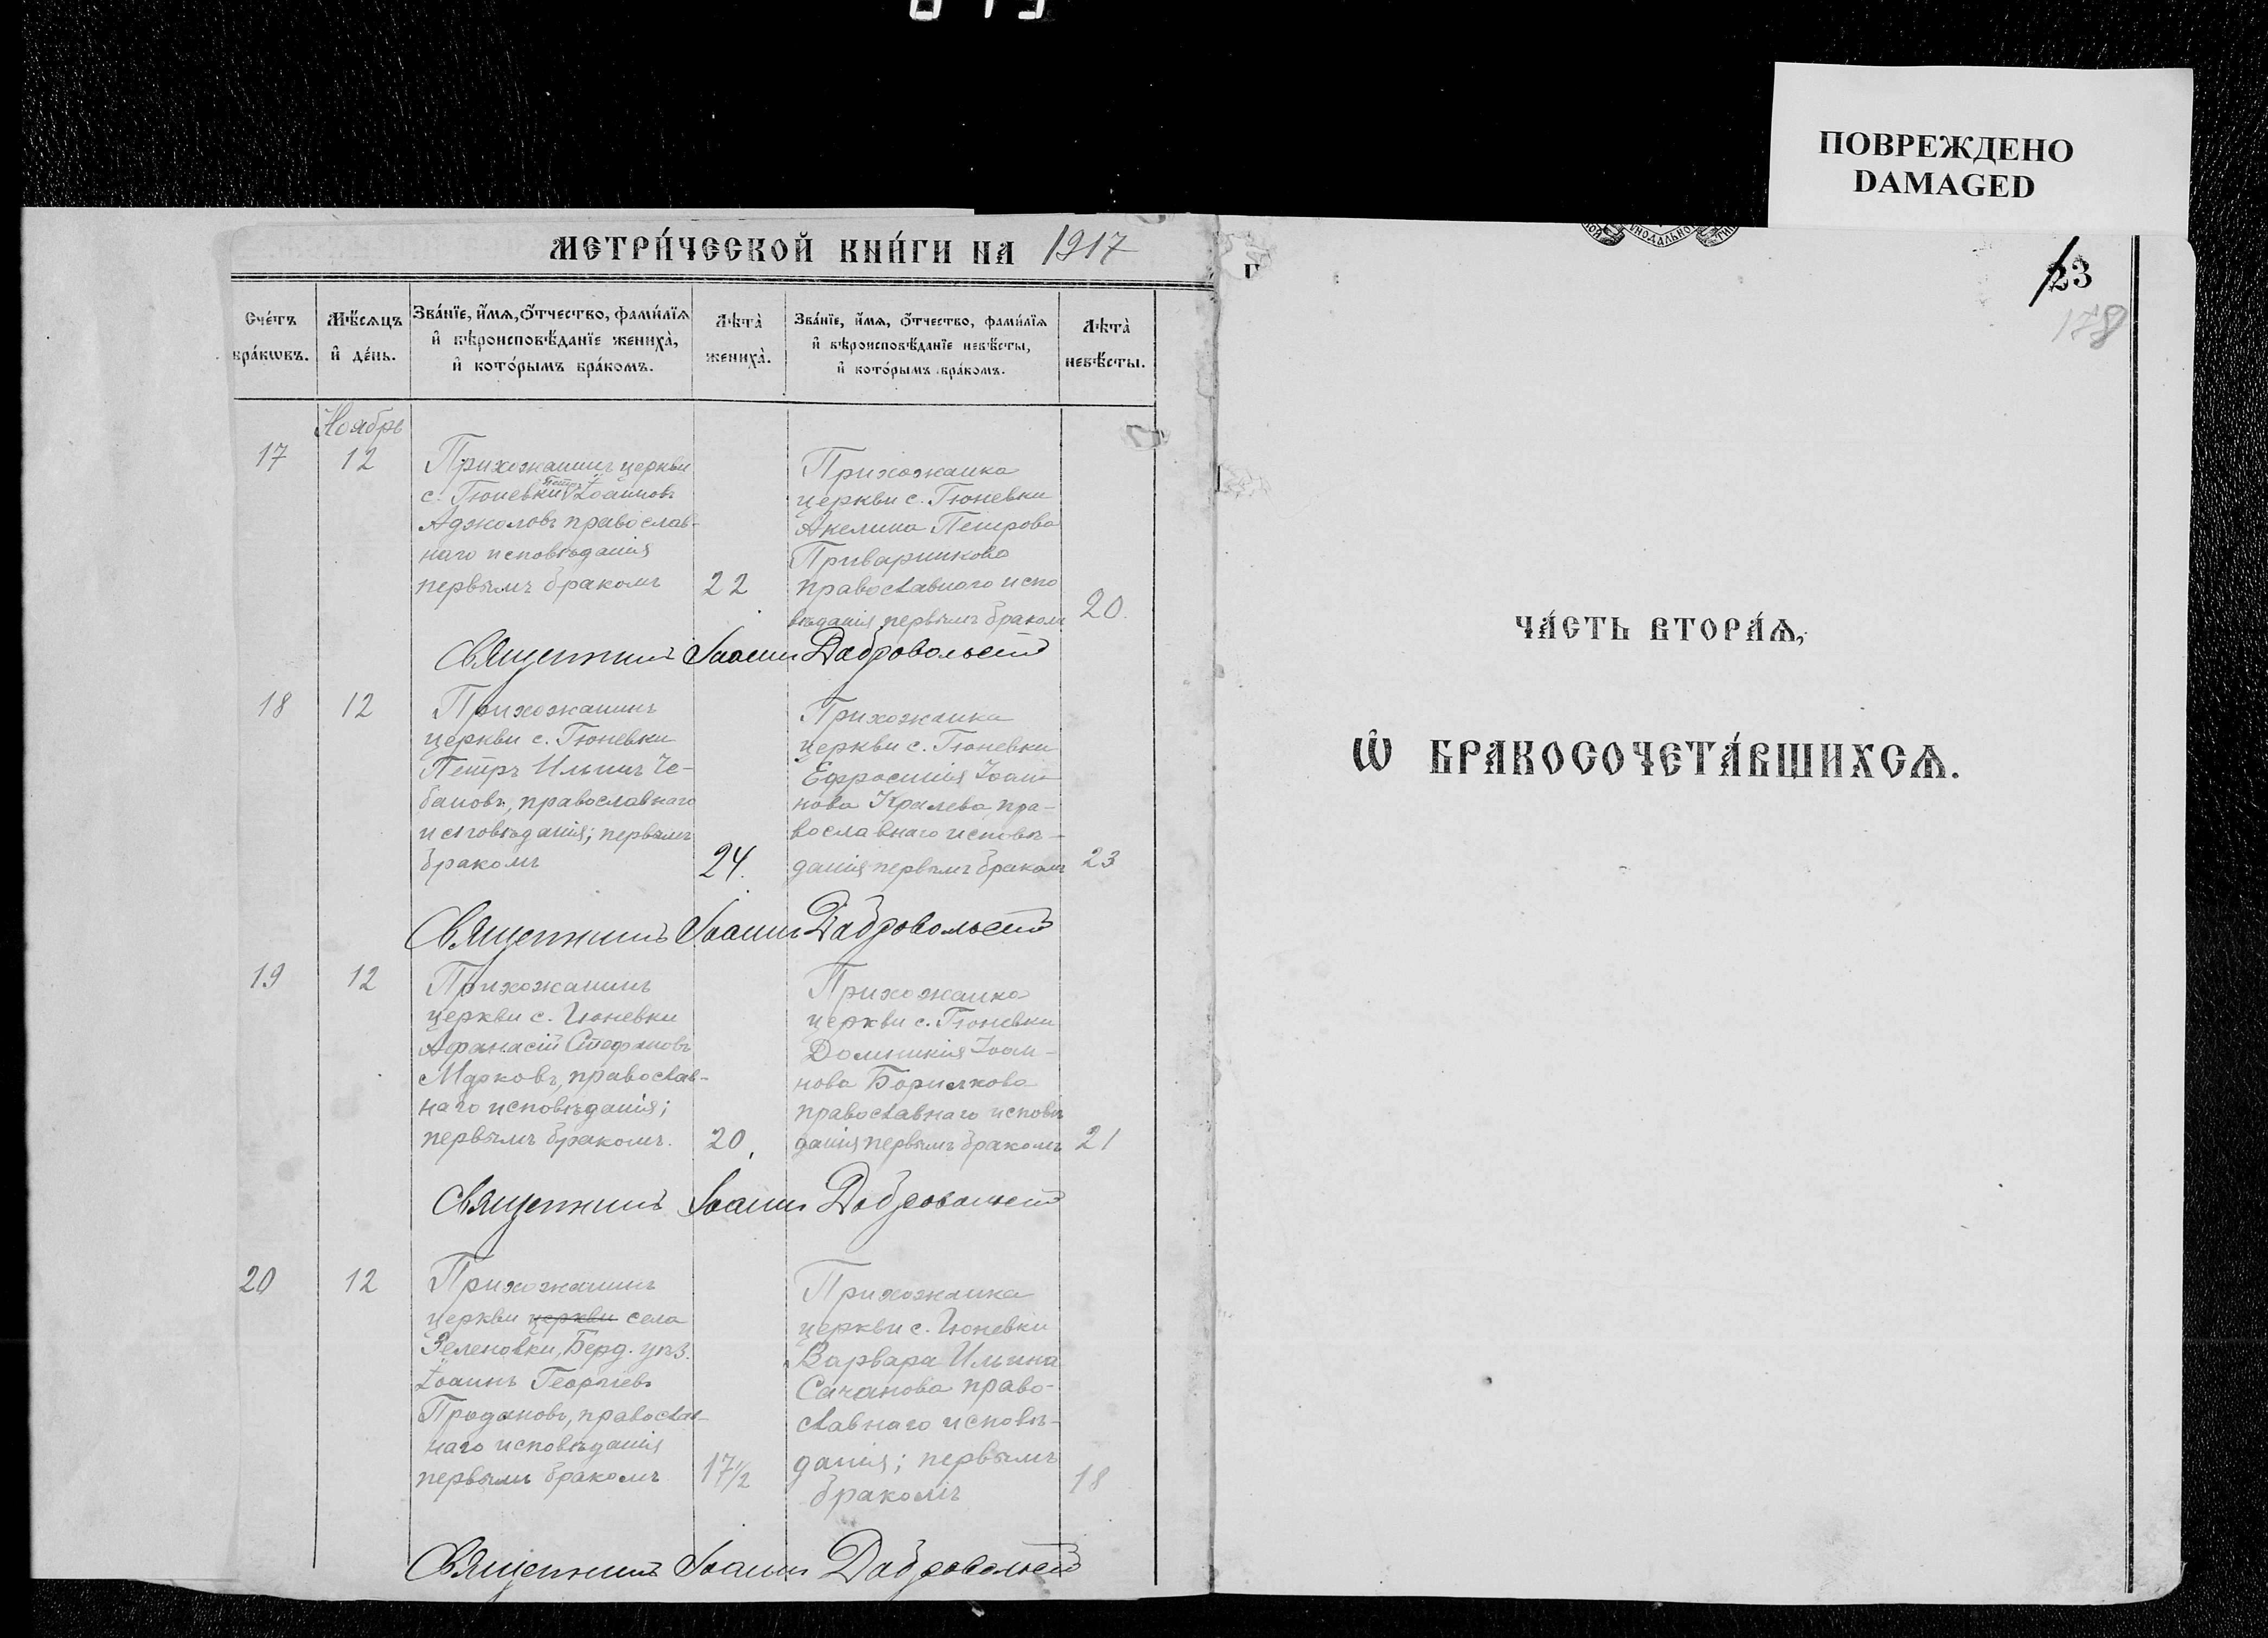 ПОВРЕЖДЕНО
DAMAGED
МЕТРИ́ЧЕСКОЙ КНИ́ГИ НА 1917
Сче́тъ бра́кѡвъ.
Мѣ́сяцъ и де́нь.
Зва́нїе, и́мя, ѻ҆́тчество, фами́лїя
и вѣроисповѣ́данїе жениха̀,
и кото́рымъ бра́комъ.
Лѣта̀ жениха̀.
Зва́нїе, и́мя, ѻ҆́тчество, фами́лїя
и вѣроисповѣ́данїе невѣ́сты,
и кото́рымъ бра́комъ.
Лѣта̀ невѣ́сты.
Ноябрь
17
12
Прихожанинъ церкви
с. Гюневки Петръ Іоанновъ
Аджоловъ православ-
наго исповѣданія
первымъ бракомъ
22
Прихожанка
церкви с. Гюневки
Акелина Петрова
православнаго испо
вѣданія первымъ браком
20.
Священникъ Іоаннъ Добровольскій
18
12
Прихожанинъ
церкви с. Гюневки
Петръ Ильинъ Че-
бановъ, православнаго
исповѣданія; первымъ
бракомъ
24.
Прихожанка
церкви с. Гюневки
Ефросинія Іоан-
нова Кралева, пра-
вославнаго исповѣ-
данія первымъ бракомъ
23
Священникъ Іоаннъ Добровольскій
19
12
Прихожанинъ
церкви с. Гюневки
Афанасій Стефановъ
Марковъ, православ-
наго исповѣданія;
первымъ бракомъ.
20.
Прихожанка
церкви с. Гюневки
Домникія Іоан-
нова Борилкова
православнаго исповѣ
данія первымъ бракомъ
21
Священникъ Іоаннъ Добровольскій
20
12
Прихожанинъ
церкви церкви села
Зеленовки, Берд. уѣз.
Іоаннъ Георгіевъ
Продановъ, православ-
наго исповѣданія
первымъ бракомъ
17 1/2
Прихожанка
церкви с. Гюневки
Варвара Ильина
Сачанова право-
славнаго исповѣ-
данія; первымъ
бракомъ
18
Священникъ Іоаннъ Добровольскій
23
178
ЧА́СТЬ ВТОРА́Ѧ,
Ѽ БРАКОСОЧЕТА́ВШИХСѦ.